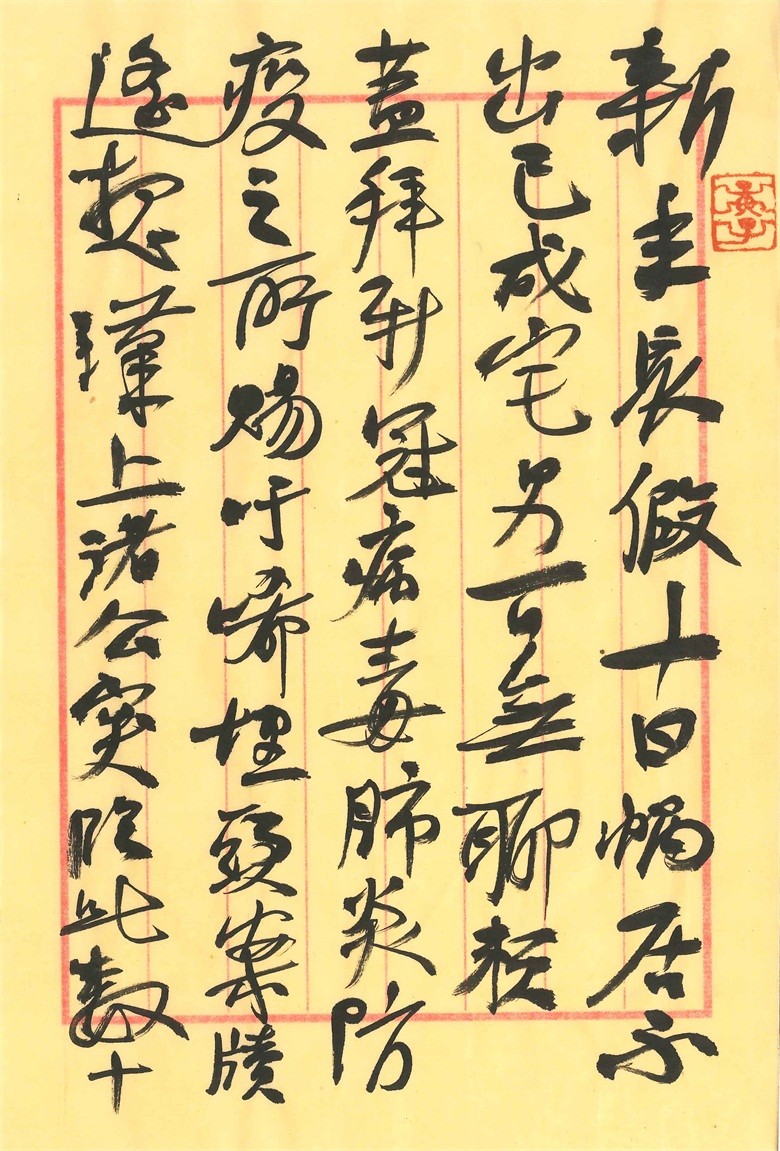 庚子
新年長假十日蝸居不
出已成宅男百無聊賴
蓋拜新冠病毒肺炎防
疫之所賜吁唏埋頭案牘
遙想漢上諸公突臨此數十